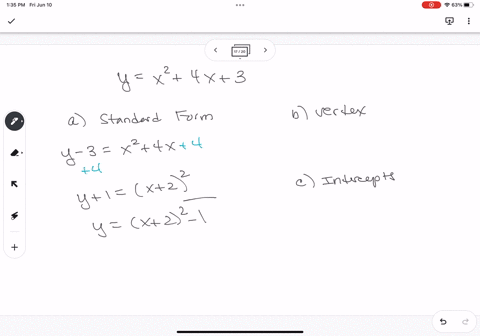 1:35 PM Fri Jun 10
63%
17 / 20
y = x² + 4x + 3
a) Standard Form
b) vertex
y - 3 = x² + 4x + 4
+4
c) Intercepts
y + 1 = (x + 2)²
y = (x + 2)² - 1